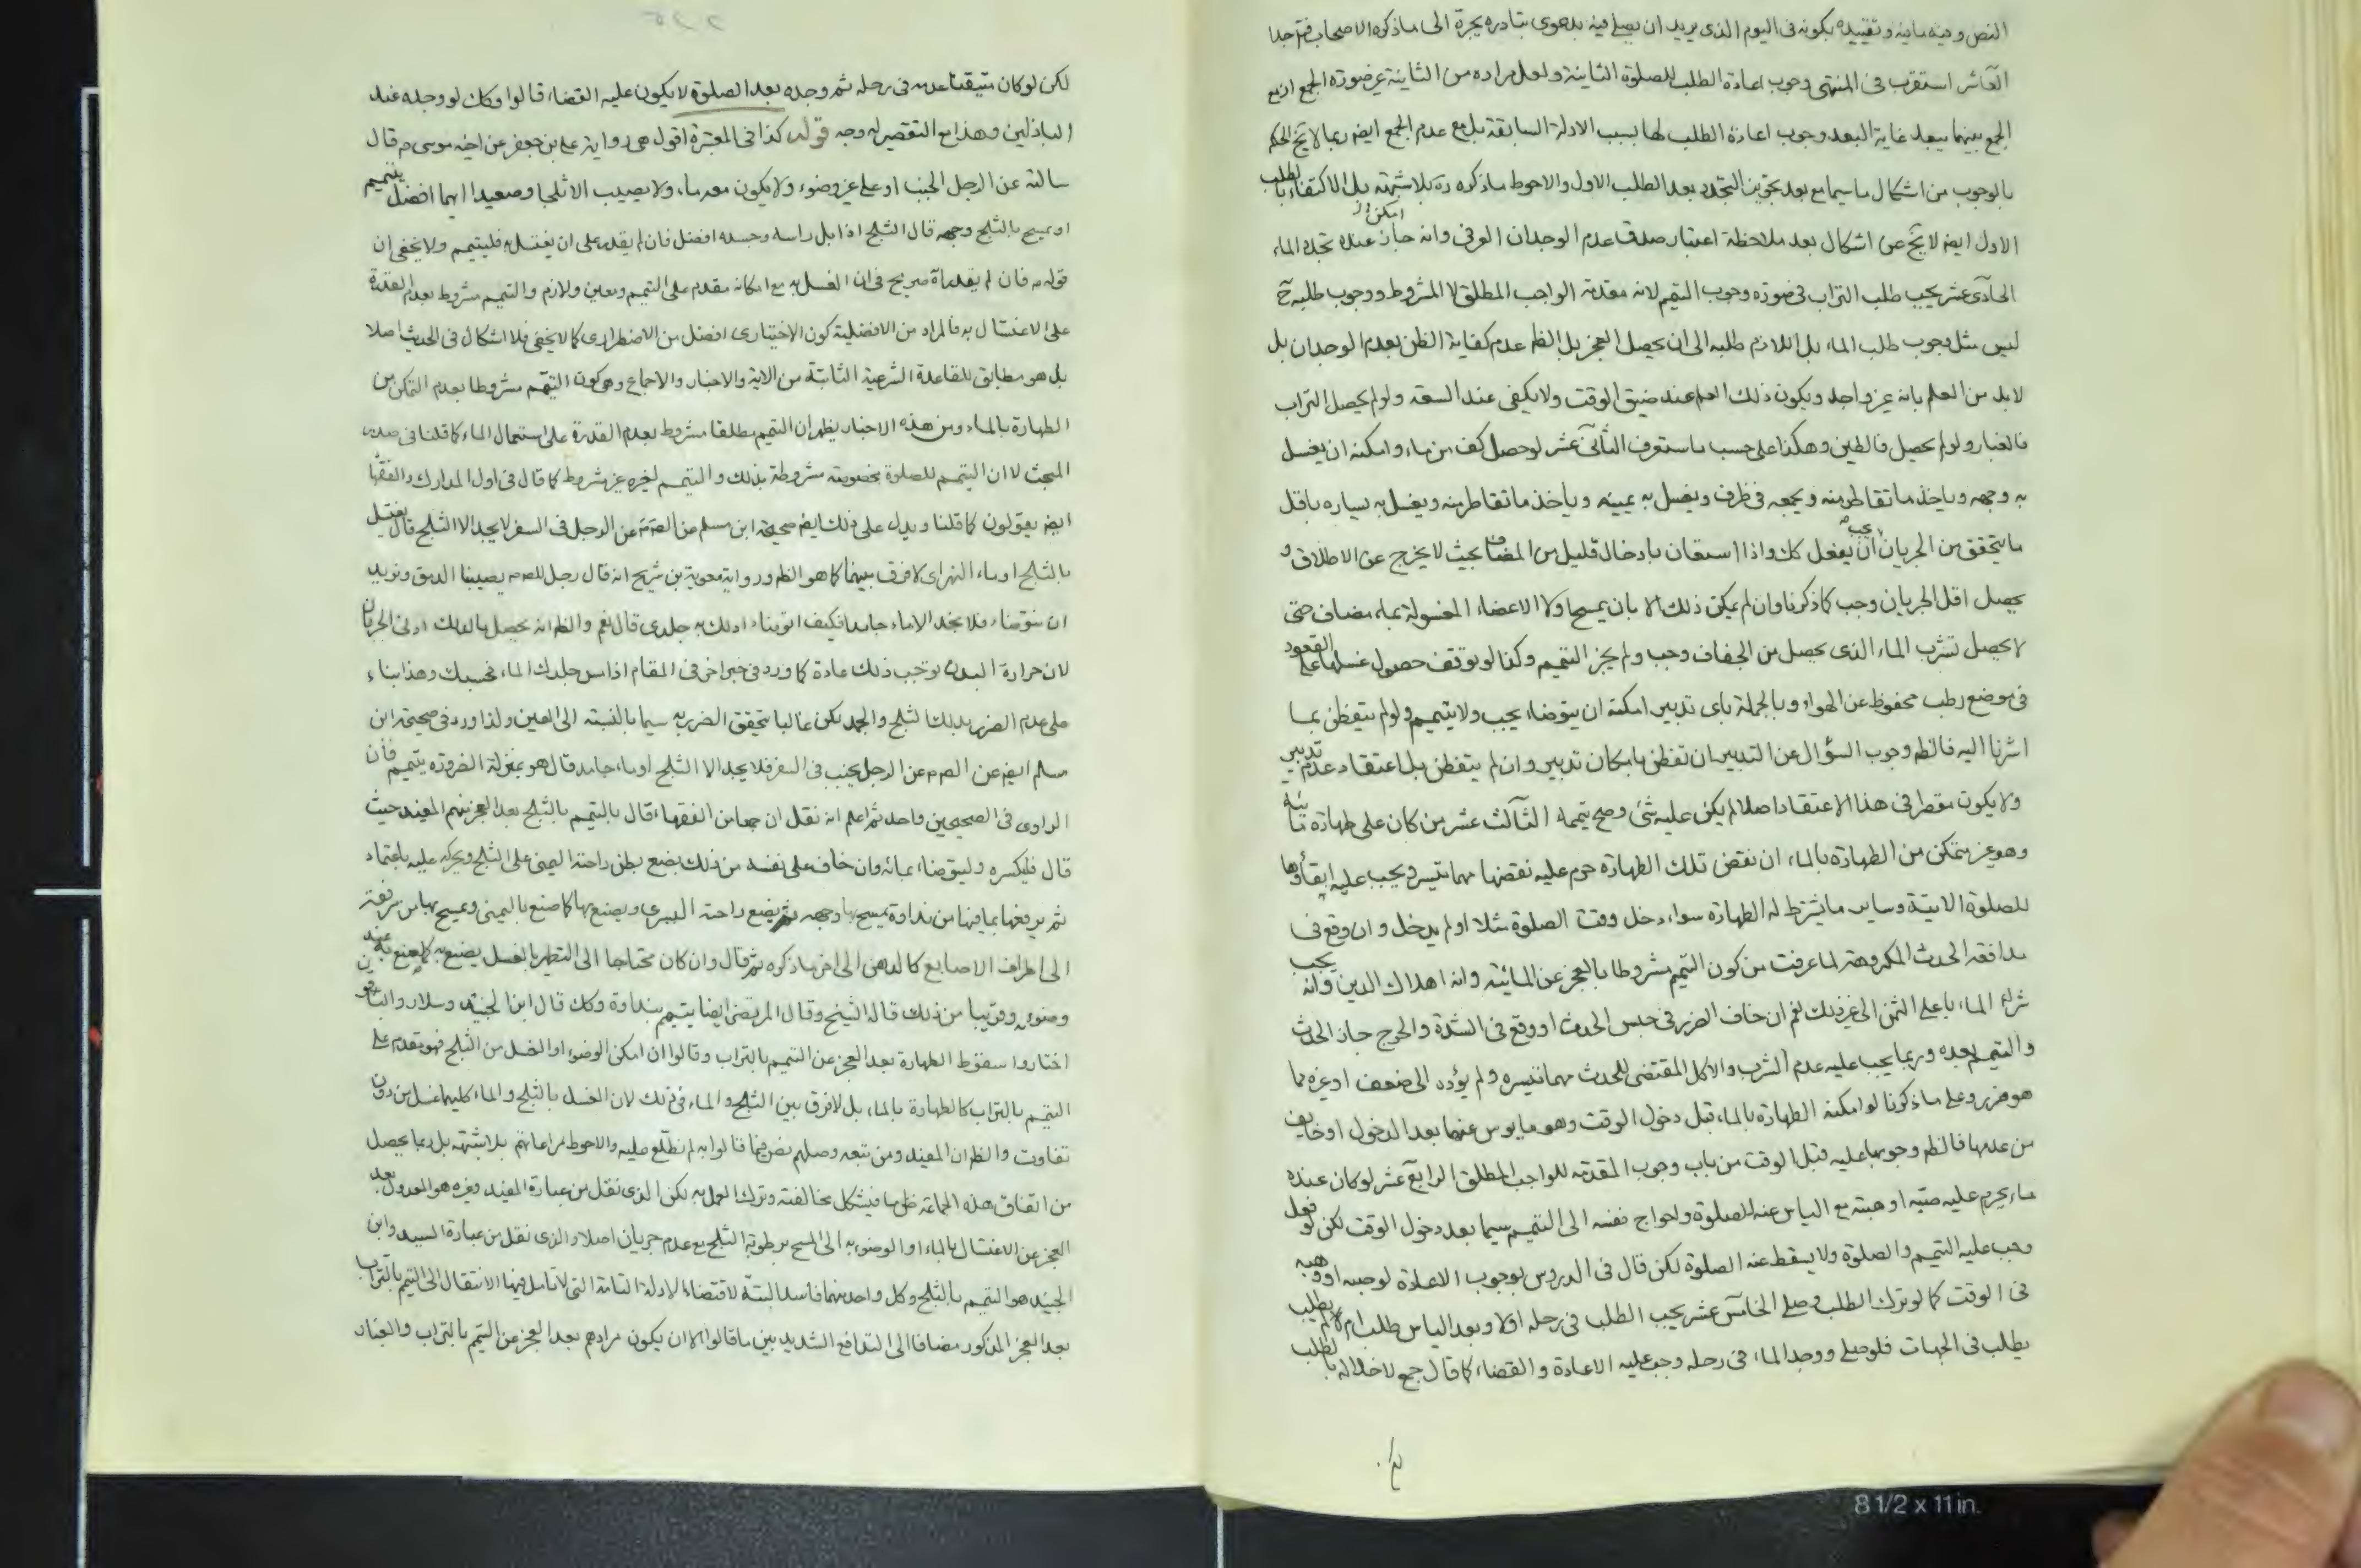 النص وفيه مافيه وتقييده بكونه فى اليوم الذى يريد ان يصلى فيه بدعوى تبادره يجرة الى ماذكره الاصحاب فتم جدا
العاشر استقرب فى المنتهى وجوب اعادة الطلب للصلوة الثانية ولعل مراده من الثانية غير صورة الجمع اذ مع
الجمع بينهما يبعد غاية البعد وجوب اعادة الطلب لها بسبب الادلة السابقة بل مع عدم الجمع ايضا ربما لا يخ الحكم
بالوجوب من اشكال ما سيما مع بعد تجويز التجدد بعد الطلب الاول والاحوط ماذكره ره بلا شبهة بل الاكتفاء بالطلب
الاول ايضا لا يخ عن اشكال بعد ملاحظة اعتبار صدق عدم الوجدان العرفى وانه جاز عنده تجدد الماء
الحادى عشر يجب طلب التراب فى صورة وجوب التيمم لانه مقدمة الواجب المطلق لا المشروط ووجوب طلبه ح
ليس مثل وجوب طلب الماء بل اللازم طلبه الى ان يحصل العجز بل الظ عدم كفاية الظن بعدم الوجدان بل
لابد من العلم بانه غير واجد ويكون ذلك العلم عند ضيق الوقت ولا يكفى عند السعة ولو لم يحصل التراب
فالغبار ولو لم يحصل فالطين وهكذا على حسب ما ستعرف الثانى عشر لو حصل كف من ماء وامكنه ان يغسل
به وجهه وياخذ ما تقاطر منه ويجمعه فى ظرف ويغسل به يمينه وياخذ ما تقاطر منه ويغسل به يساره باقل
ما يتحقق من الجريان يجب ان يفعل كك واذا استعان بادخال قليل من المضاف بحيث لا يخرج عن الاطلاق و
يحصل اقل الجريان وجب كما ذكرنا وان لم يمكن ذلك الا بان يمسح اولا الاعضاء المغسولة بماء مضاف حتى
لا يحصل تشرب الماء الذى يحصل من الجفاف وجب ولم يجز التيمم وكذا لو توقف حصول غسلها على القعود
فى موضع رطب محفوظ عن الهواء وبالجملة باى تدبير امكنه ان يتوضاء يجب ولا يتيمم ولو لم يتفطن بما
اشرنا اليه فالظ وجوب السؤال عن التدبير ان تفطن بامكان تدبير وان لم يتفطن بل اعتقاد عدم تدبير
ولا يكون مقصرا فى هذا الاعتقاد اصلا لم يكن عليه شئ وصح تيممه الثالث عشر من كان على طهارة مائية
وهو غير متمكن من الطهارة بالماء ان نقض تلك الطهارة حرم عليه نقضها مهما تيسر ويجب عليه ابقاؤها
للصلوة الاتية وساير ما يشترط له الطهارة سواء دخل وقت الصلوة مثلا او لم يدخل وان وقع فى
مدافعة الحدث المكروهة لما عرفت من كون التيمم مشروطا بالعجز عن المائية وانه اهلاك الدين وانه يجب
شراء الماء باعلى الثمن الى غير ذلك نعم ان خاف الضرر فى حبس الحدث او وقع فى الشدة والحرج جاز الحدث
والتيمم بعده وربما يجب عليه عدم الشرب والاكل المقتضى للحدث مهما تيسر ولم يؤده الى ضعف او غيره مما
هو ضرر وعلى ماذكرنا لو امكنه الطهارة بالماء قبل دخول الوقت وهو مايوس عنها بعد الدخول او خايف
من عدمها فالظ وجوبها عليه قبل الوقت من باب وجوب المقدمة للواجب المطلق الرابع عشر لو كان عنده
ماء يحرم عليه صبه او هبته مع الياس عنه للصلوة ولحوايج نفسه الى التيمم سيما بعد دخول الوقت لكن لو فعل
وجب عليه التيمم والصلوة ولا يسقط عنه الصلوة لكن قال فى الدروس بوجوب الاعادة لو صبه او وهبه
فى الوقت كما لو ترك الطلب وصلى الخامس عشر يجب الطلب فى رحله اولا وبعد الياس طلب ام لا ثم يطلب
يطلب فى الجهات فلو صلى ووجد الماء فى رحله وجب عليه الاعادة والقضاء كما قال جمع لاخلاله بالطلب
لكن لو كان متيقنا عدمه فى رحله ثم وجده بعد الصلوة لا يكون عليه القضاء قالوا وكك لو وجده عند
الباذلين وهذا مع التقصير له وجه قوله كذا فى المعتبرة اقول هى رواية على بن جعفر عن اخيه موسى م قال
سالته عن الرجل الجنب او على غير وضوء ولا يكون معه ماء ولا يصيب الا ثلجا وصعيدا ايهما افضل يتيمم
او يمسح بالثلج وجهه قال الثلج اذا بل راسه وجسده افضل فان لم يقدر على ان يغتسل به فليتيمم ولا يخفى ان
قوله م فان لم يقدر اه صريح فى ان الغسل به مع امكانه مقدم على التيمم ومعين ولازم والتيمم مشروط بعدم القدرة
على الاغتسال به فالمراد من الافضلية كون الاختيارى افضل من الاضطرارى كما لا يخفى فلا اشكال فى الحديث اصلا
بل هو مطابق للقاعدة الشرعية الثابتة من الاية والاخبار والاجماع وهو كون التيمم مشروطا بعدم التمكن من
الطهارة بالماء ومن هذه الاخبار يظهر ان التيمم مطلقا مشروط بعدم القدرة على استعمال الماء كما قلنا فى صدر
المبحث لا ان التيمم للصلوة بخصوصه مشروطة بذلك والتيمم لغيره غير مشروط كما قال فى اول المدارك والفقهاء
ايضا يقولون كما قلنا ويدل على ذلك ايضا صحيحة ابن مسلم عن الص م عن الرجل فى السفر لا يجد الا الثلج قال يغتسل
بالثلج او ماء النهر اى لا فرق بينهما كما هو الظ ورواية معوية بن شريح انه قال رجل للص م يصيبنا الدمق ونريد
ان نتوضاء فلا نجد الا ماء جامدا فكيف اتوضاء ادلك به جلدى قال نعم والظ انه يحصل بالدلك ادنى الجريان
لان حرارة البدن توجب ذلك عادة كما ورد فى خبر اخر فى المقام اذا مس جلدك الماء فحسبك وهذا بناء
على عدم الضرر بدلك الثلج والجمد لكن غالبا يتحقق الضرر به سيما بالنسبة الى العين ولذا ورد فى صحيحة ابن
مسلم ايضا عن الص م عن الرجل يجنب فى السفر فلا يجد الا الثلج او ماء جامد قال هو بمنزلة الضرورة يتيمم فان
الراوى فى الصحيحين واحد ثم اعلم انه نقل ان جمعا من الفقهاء قال بالتيمم بالثلج بعد العجز منهم المفيد حيث
قال فليكسره وليتوضاء بمائه وان خاف على نفسه من ذلك يضع بطن راحته اليمنى على الثلج ويحركه عليه باعتماد
ثم يرفعها بما فيها من نداوة يمسح بها وجهه ثم يضع راحته اليسرى ويصنع بها كما صنع باليمنى ويمسح بها من مرفقه
الى اطراف الاصابع كالدهن الى اخر ماذكره ثم قال وان كان محتاجا الى التطهر بالغسل يصنع به كما يصنع به عند
وضوئه وقريبا من ذلك قاله الشيخ وقال المرتضى ايضا يتيمم بنداوة وكك قال ابن الجنيد وسلار والباقون
اختاروا سقوط الطهارة بعد العجز عن التيمم بالتراب وقالوا ان امكن الوضوء او الغسل من الثلج فهو مقدم على
التيمم بالتراب كالطهارة بالماء بل لا فرق بين الثلج والماء فى ذلك لان الغسل بالثلج والماء كليهما غسل من دون
تفاوت والظ ان المفيد ومن تبعه وصلهم نص فيما قالوا به لم نطلع عليه والاحوط مراعاتهم بلا شبهة بل ربما يحصل
من اتفاق هذه الجماعة ظن ما فيشكل مخالفته وترك العمل به لكن الذى نقل من عبارة المفيد وغيره هو العدول بعد
العجز عن الاغتسال بالماء او الوضوء به الى المسح برطوبة الثلج مع عدم جريان اصلا والذى نقل من عبارة السيد وابن
الجنيد هو التيمم بالثلج وكل واحد منهما فاسد البتة لاقتضاء الادلة التامة التى لا تامل فيها الانتقال الى التيمم بالتراب
بعد العجز المذكور مضافا الى التدافع الشديد بين ما قالوا الا ان يكون مرادهم بعد العجز عن التيمم بالتراب والغبار
8 1/2 x 11 in.